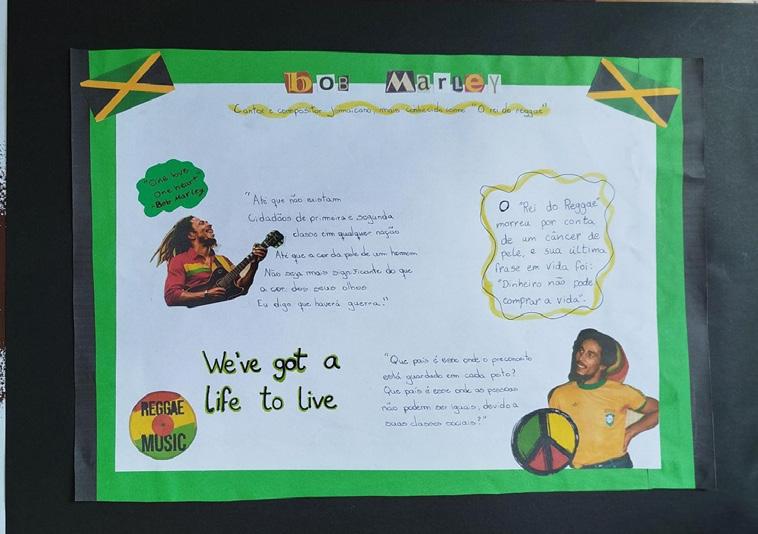 BOB MARLEY
Cantor e compositor jamaicano, mais conhecido como "O rei do reggae"
"One love
One heart"
-Bob Marley
"Até que não existam
Cidadãos de primeira e segunda
classe em qualquer nação
Até que a cor da pele de um homem
Não seja mais significante do que
a cor dos seus olhos
Eu digo que haverá guerra!"
O "Rei do Reggae"
morreu por conta
de um câncer de
pele, e sua última
frase em vida foi:
"Dinheiro não pode
comprar a vida".
We've got a
life to live
"Que país é esse onde o preconceito
está guardado em cada peito?
Que país é esse onde as pessoas
não podem ser iguais, devido a
suas classes sociais?"
REGGAE
MUSIC